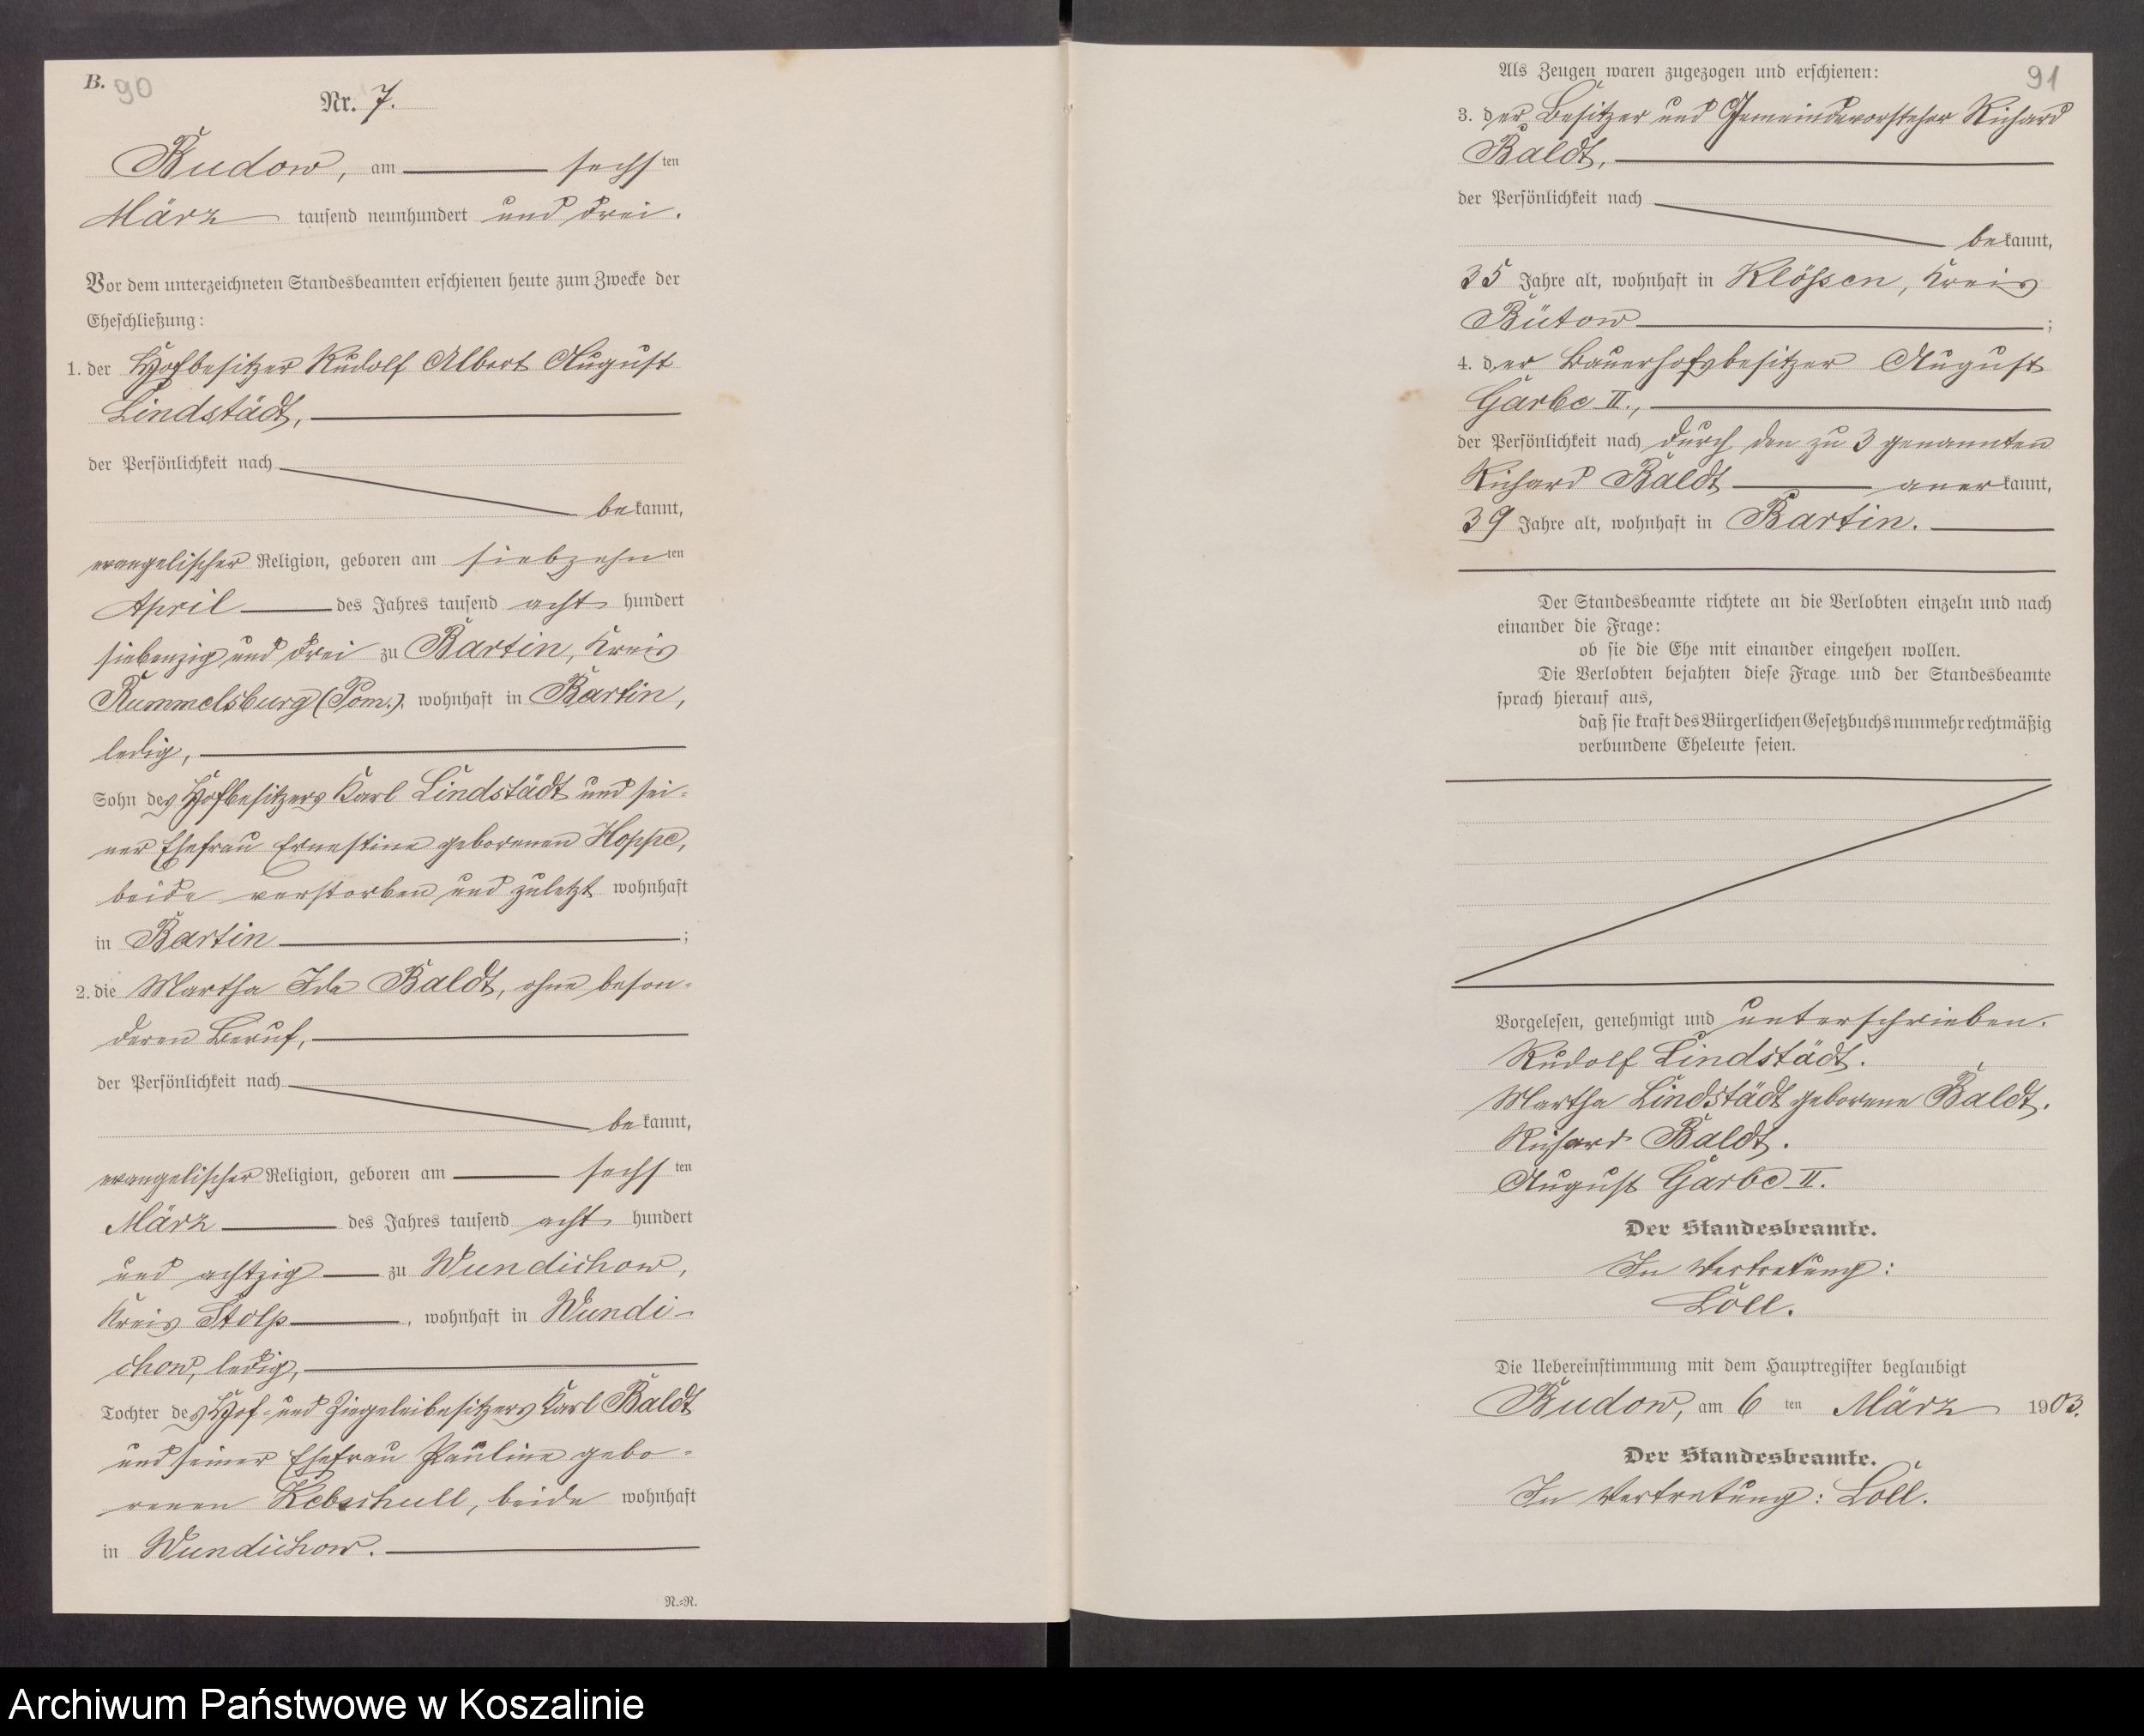 B. 90
Nr. 7.
Budow, am sechsten
März tausend neunhundert und drei.
Vor dem unterzeichneten Standesbeamten erschienen heute zum Zwecke der
Eheschließung:
1. der Hofbesitzer Rudolf Albert August
Lindstädt,
der Persönlichkeit nach
bekannt,
evangelischer Religion, geboren am siebzehnten
April des Jahres tausend acht hundert
siebenzig und drei zu Bartin, Kreis
Rummelsburg (Pom.), wohnhaft in Bartin,
ledig,
Sohn des Hofbesitzers Karl Lindstädt und sei-
ner Ehefrau Ernestine geborenen Hoppe,
beide verstorben und zuletzt wohnhaft
in Bartin ;
2. die Martha Ida Baldt, ohne beson-
deren Beruf,
der Persönlichkeit nach
bekannt,
evangelischer Religion, geboren am sechsten
März des Jahres tausend acht hundert
und achtzig zu Wundichow,
Kreis Stolp, wohnhaft in Wundi-
chow, ledig,
Tochter des Hof- und Ziegeleibesitzers Karl Baldt
und seiner Ehefrau Pauline gebo-
renen Kebschull, beide wohnhaft
in Wundichow.
N.-R.
91
Als Zeugen waren zugezogen und erschienen:
3. der Besitzer und Gemeindevorsteher Richard
Baldt,
der Persönlichkeit nach
bekannt,
35 Jahre alt, wohnhaft in Klössen, Kreis
Bütow ;
4. der Bauerhofsbesitzer August
Garbe II.,
der Persönlichkeit nach durch den zu 3 genannten
Richard Baldt anerkannt,
39 Jahre alt, wohnhaft in Bartin.
Der Standesbeamte richtete an die Verlobten einzeln und nach
einander die Frage:
ob sie die Ehe mit einander eingehen wollen.
Die Verlobten bejahten diese Frage und der Standesbeamte
sprach hierauf aus,
daß sie kraft des Bürgerlichen Gesetzbuchs nunmehr rechtmäßig
verbundene Eheleute seien.
Vorgelesen, genehmigt und unterschrieben.
Rudolf Lindstädt.
Martha Lindstädt geborene Baldt.
Richard Baldt.
August Garbe II.
Der Standesbeamte.
In Vertretung:
Löll.
Die Uebereinstimmung mit dem Hauptregister beglaubigt
Budow, am 6 ten März 1903.
Der Standesbeamte.
In Vertretung: Löll.
Archiwum Państwowe w Koszalinie